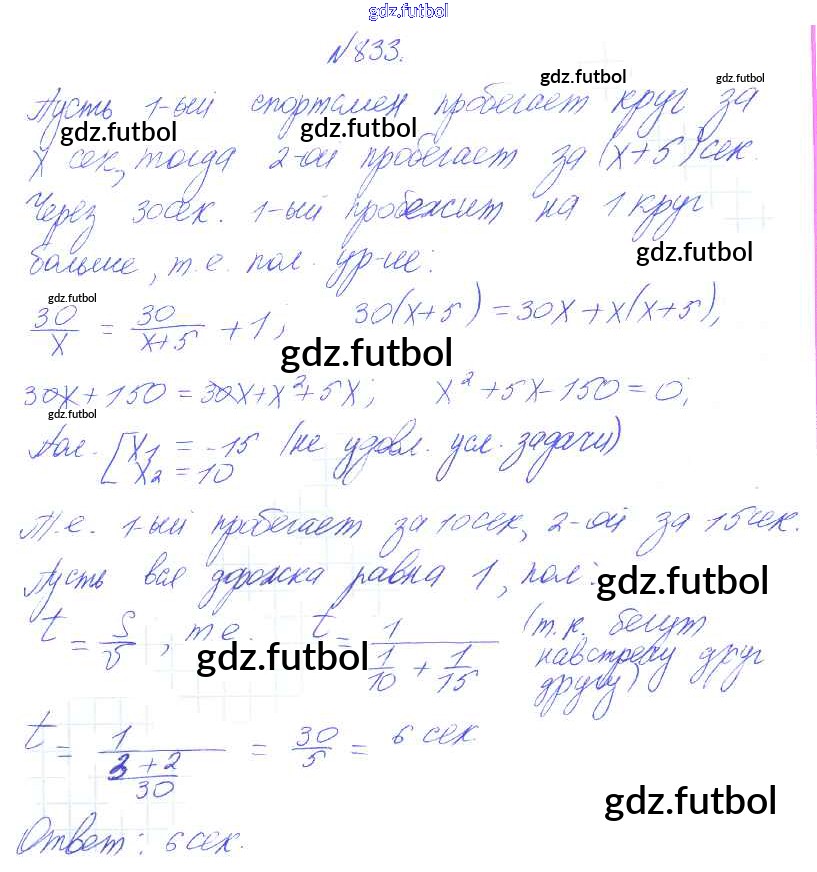 gdz.futbol
№833.
gdz.futbol gdz.futbol
Пусть 1-ый спортсмен пробегает круг за
gdz.futbol gdz.futbol
x сек, тогда 2-ой пробегает за (x+5) сек.
Через 30сек. 1-ый пробежит на 1 круг
gdz.futbol
больше, т.е. пол. ур-ие:
gdz.futbol
30/x = 30/(x+5) + 1; 30(x+5) = 30x + x(x+5),
gdz.futbol
30x + 150 = 30x + x² + 5x; x² + 5x - 150 = 0;
gdz.futbol
Пол. [x₁ = -15 (не удовл. усл. задачи)
x₂ = 10
Т.е. 1-ый пробегает за 10сек, 2-ой за 15сек.
Пусть вся дорожка равна 1, пол:
gdz.futbol
t = S/v; т.е. t = 1/(1/10 + 1/15) (т.к. бегут
навстречу друг
другу)
gdz.futbol
t = 1/((3+2)/30) = 30/5 = 6 сек.
gdz.futbol
Ответ: 6 сек.